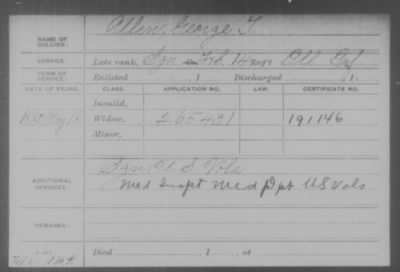 NAME OF SOLDIER: Allen, George T.
SERVICE: Late rank, Sgn Feb. 14 Reg't Ill Inf
TERM OF SERVICE: Enlisted , 1 Discharged , 1 .
DATE OF FILING. CLASS. APPLICATION NO. LAW. CERTIFICATE NO.
Invalid,
Widow, 265431 191146
Minor,
ADDITIONAL SERVICES: Sgn U. S. Vols
Med Inspt Med Dpt US Vols
REMARKS:
Died , 1 , at